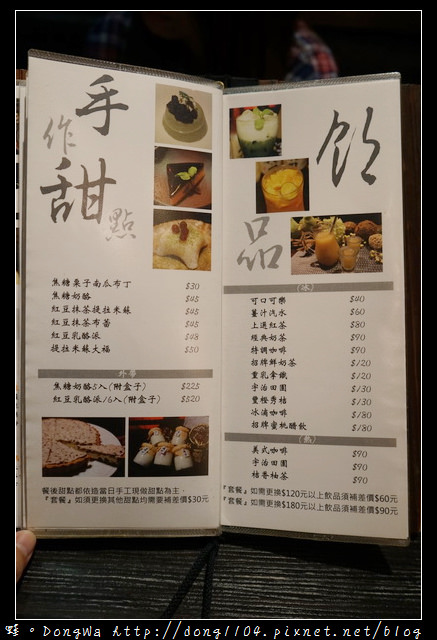 手作甜點
焦糖栗子南瓜布丁 $30
焦糖奶酪 $45
紅豆抹茶提拉米蘇 $45
紅豆抹茶布蕾 $45
紅豆乳酪派 $48
提拉米蘇大福 $50
外帶
焦糖奶酪5入(附盒子) $225
紅豆乳酪派/6入(附盒子) $520
餐後甜點都依造當日手工現做甜點為主
『套餐』如須更換其他甜點均需補差價$30元
飲品
(冰)
可口可樂 $40
薑汁汽水 $60
上選紅茶 $80
經典奶茶 $90
特調咖啡 $90
招牌鮮奶茶 $120
重乳拿鐵 $120
宇治田園 $130
豐橙勇桔 $130
冰滴咖啡 $180
招牌蜜桃醋飲 $180
(熱)
美式咖啡 $90
宇治田園 $90
桔香柚茶 $90
『套餐』如需更換$120元以上飲品須補差價$60元
『套餐』如需更換$180元以上飲品須補差價$90元
蛙。DongWa Http://dong1104.pixnet.net/blog